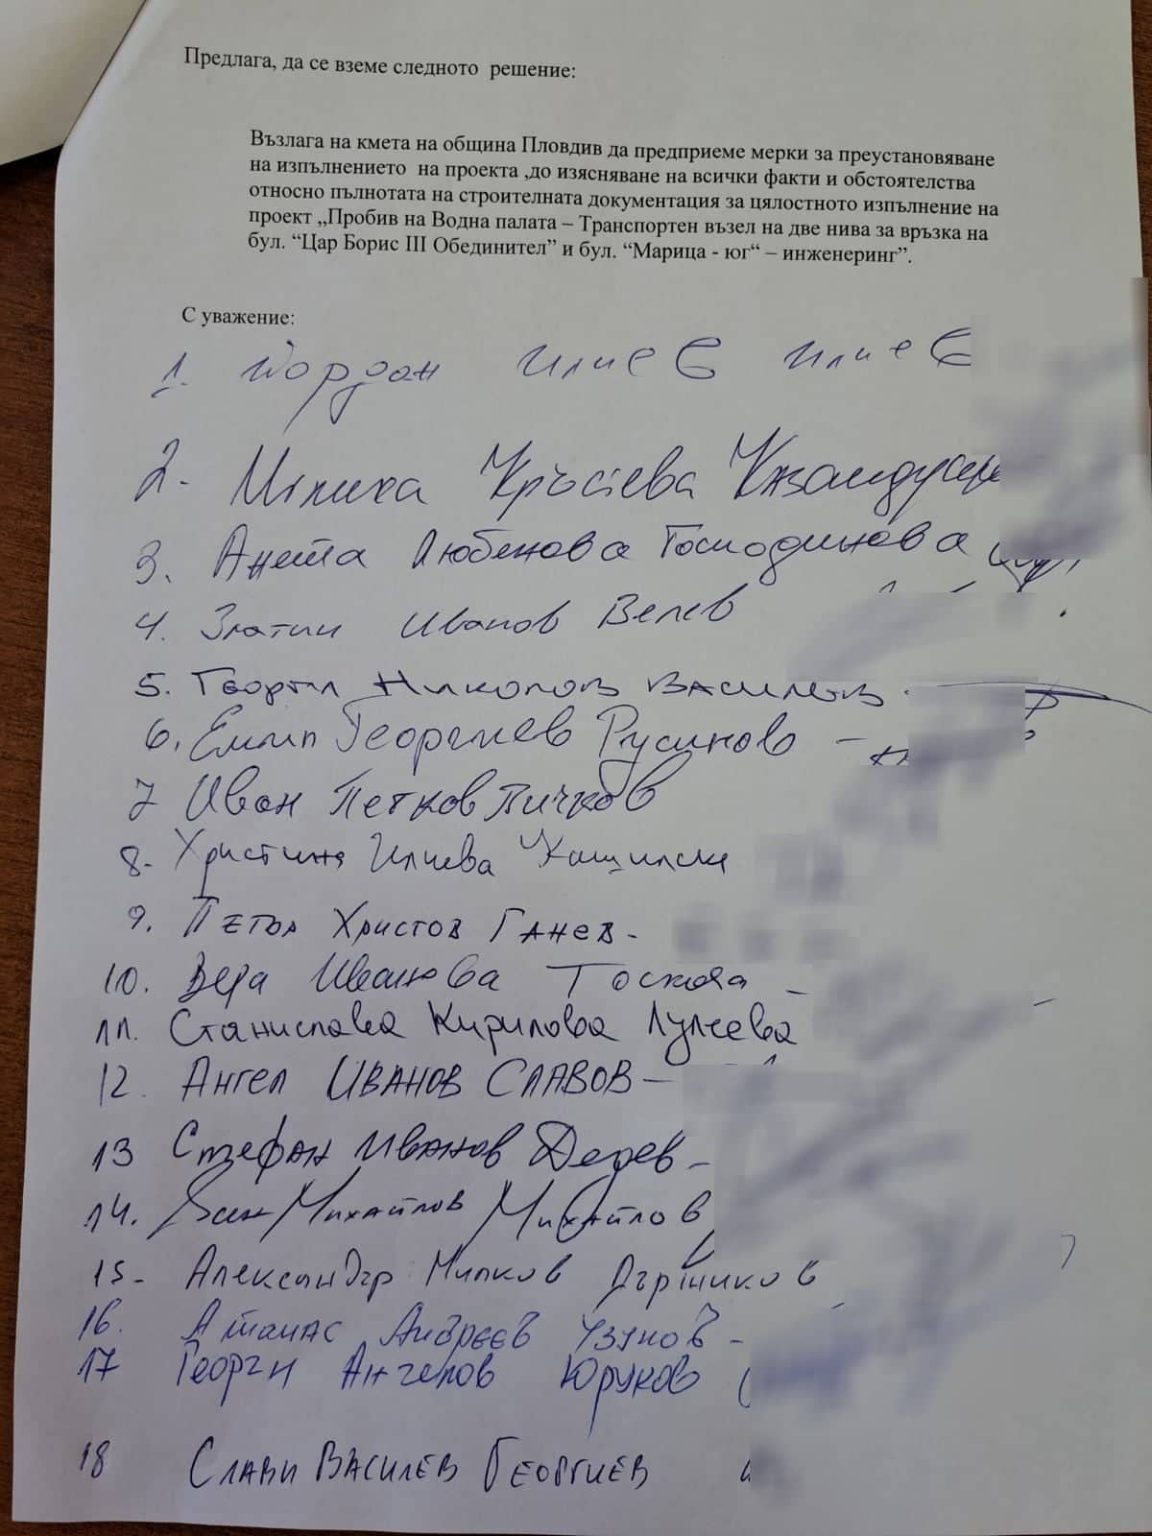 Предлага, да се вземе следното решение:
Възлага на кмета на община Пловдив да предприеме мерки за преустановяване
на изпълнението на проекта ,до изясняване на всички факти и обстоятелства
относно пълнотата на строителната документация за цялостното изпълнение на
проект „Пробив на Водна палата – Транспортен възел на две нива за връзка на
бул. “Цар Борис III Обединител” и бул. “Марица - юг“ – инженеринг”.
С уважение:
1. Йордан Илиев Илиев
2. Илиана
3. Анета Любенова Господинова
4. Златин Иванов Велев
5. Георги Николов Василев
6. Емил Георгиев Русинов –
7 Иван Петков Пичков
8. Христина Илиева
9. Петър Христов Ганев -
10. Вера Иванова Тоскова –
11. Станислава Кирилова Лулчева
12. Ангел ИВАНОВ СЛАВОВ –
13 Стефан Иванов Дедев –
14. Михайлов Михайлов
15 - Александър Милков Държиков
16. Атанас Андреев Узунов -
17 Георги Ангелов Юруков
18 Слави Василев Георгиев